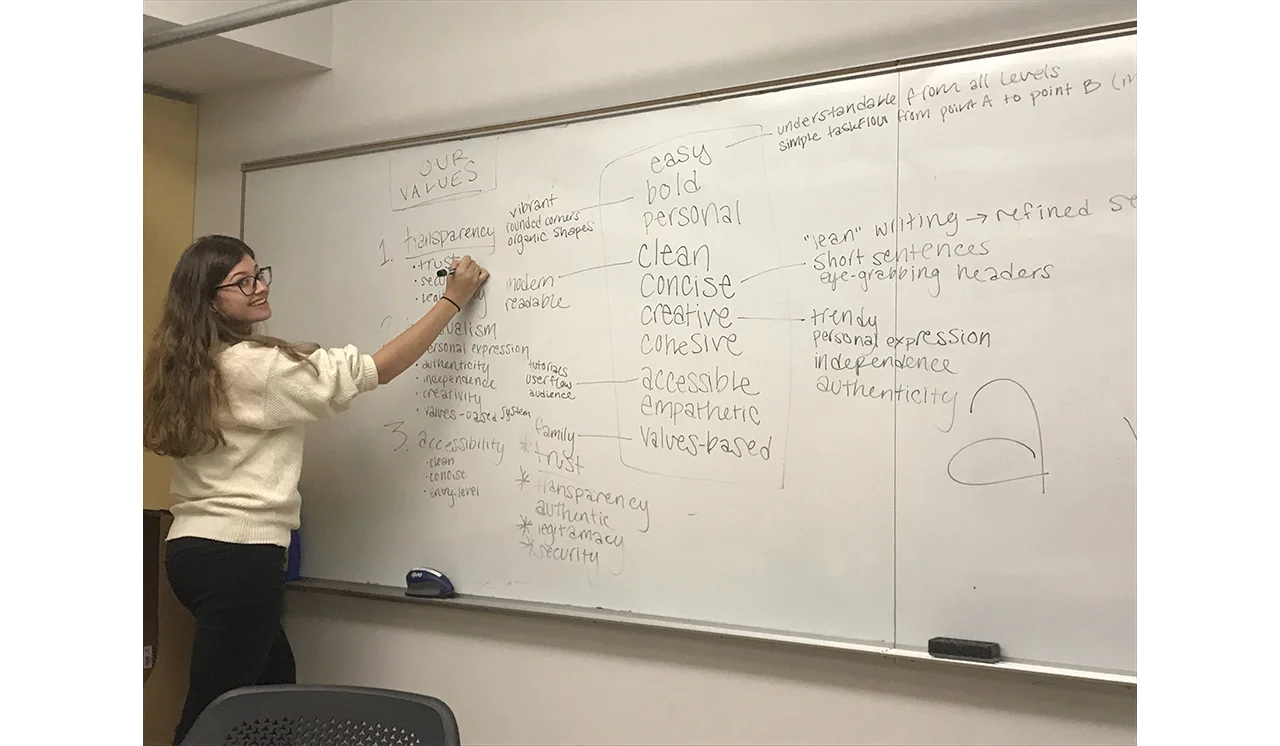 OUR
VALUES
1. transparency
• trust
•
•
2.
personal expression
• authenticity
• independence
• creativity
• values-based system
3. accessibility
• clean
• concise
• entry-level
vibrant
rounded corners
organic shapes
modern
readable
tutorials
userflow
audience
family
* trust
* transparency
authentic
* legitamacy
* security
easy
bold
personal
clean
concise
creative
cohesive
accessible
empathetic
values-based
understandable from all levels
simple taskflow from point A to point B
"lean" writing → refined
short sentences
eye-grabbing headers
trendy
personal expression
independence
authenticity
a